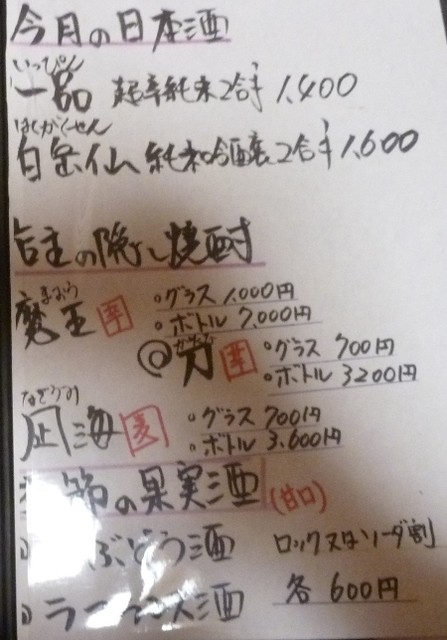 今月の日本酒
いっぴん
一品 超辛純米2合 1,400
はくがくせん
白岳仙 純米吟醸2合 1,600
店主の隠し焼酎
まおう
魔王 芋 ・グラス 1,000円
・ボトル 7,000円
かたな
刀 芋 ・グラス 700円
・ボトル 3200円
なぎうみ
凪海 麦 ・グラス 700円
・ボトル 3,600円
節の果実酒 (甘口)
ぶどう酒 ロック又はソーダ割
酒 各 600円